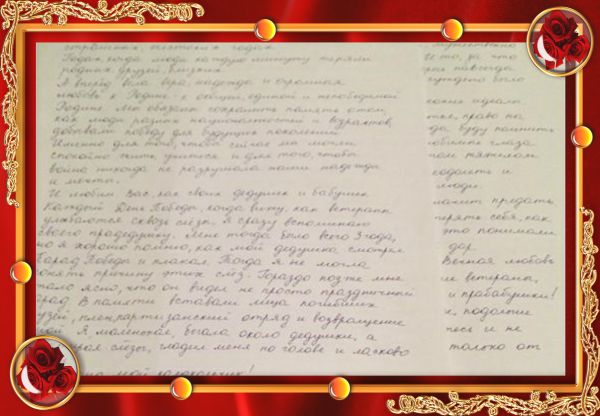 страшных, жестоких годах
Годах, когда люди каждую минуту теряли
родных, друзей, близких.
А вперёд вела вера, надежда и огромная
любовь к Родине - к общей, единой и непобедимой
Родине. Мы обязаны сохранить память о том,
как люди разных национальностей и возрастов
добывали победу для будущих поколений.
Именно для того, чтобы сейчас мы могли
спокойно жить, учиться и для того, чтобы
война никогда не разрушала наши надежды
и мечты.
И любим Вас, как своих дедушек и бабушек
Каждый День Победы, когда вижу, как ветераны
улыбаются сквозь слёзы, я сразу вспоминаю
своего прадедушку. Мне тогда было всего 3 года,
но я хорошо помню, как мой дедушка смотрел
Парад Победы и плакал. Тогда я не могла
онять причину этих слёз. Гораздо позже мне
тало ясно, что он видел не просто праздничный
рад. В памяти вставали лица погибших
узей, плен, партизанский отряд и возвращение
мой. Я маленькая, бегала около дедушки, а
слёзы, гладил меня по голове и ласково
мой колокольчик!
мужественно
И то, за что
навсегда
было
идеалы
право на
да буду помнить
глаза
тяжелом
и
люди.
предать
терять себя, как
это понимали
дар
Вечная любовь
е ветераны,
и прабабушки!
и не
только от